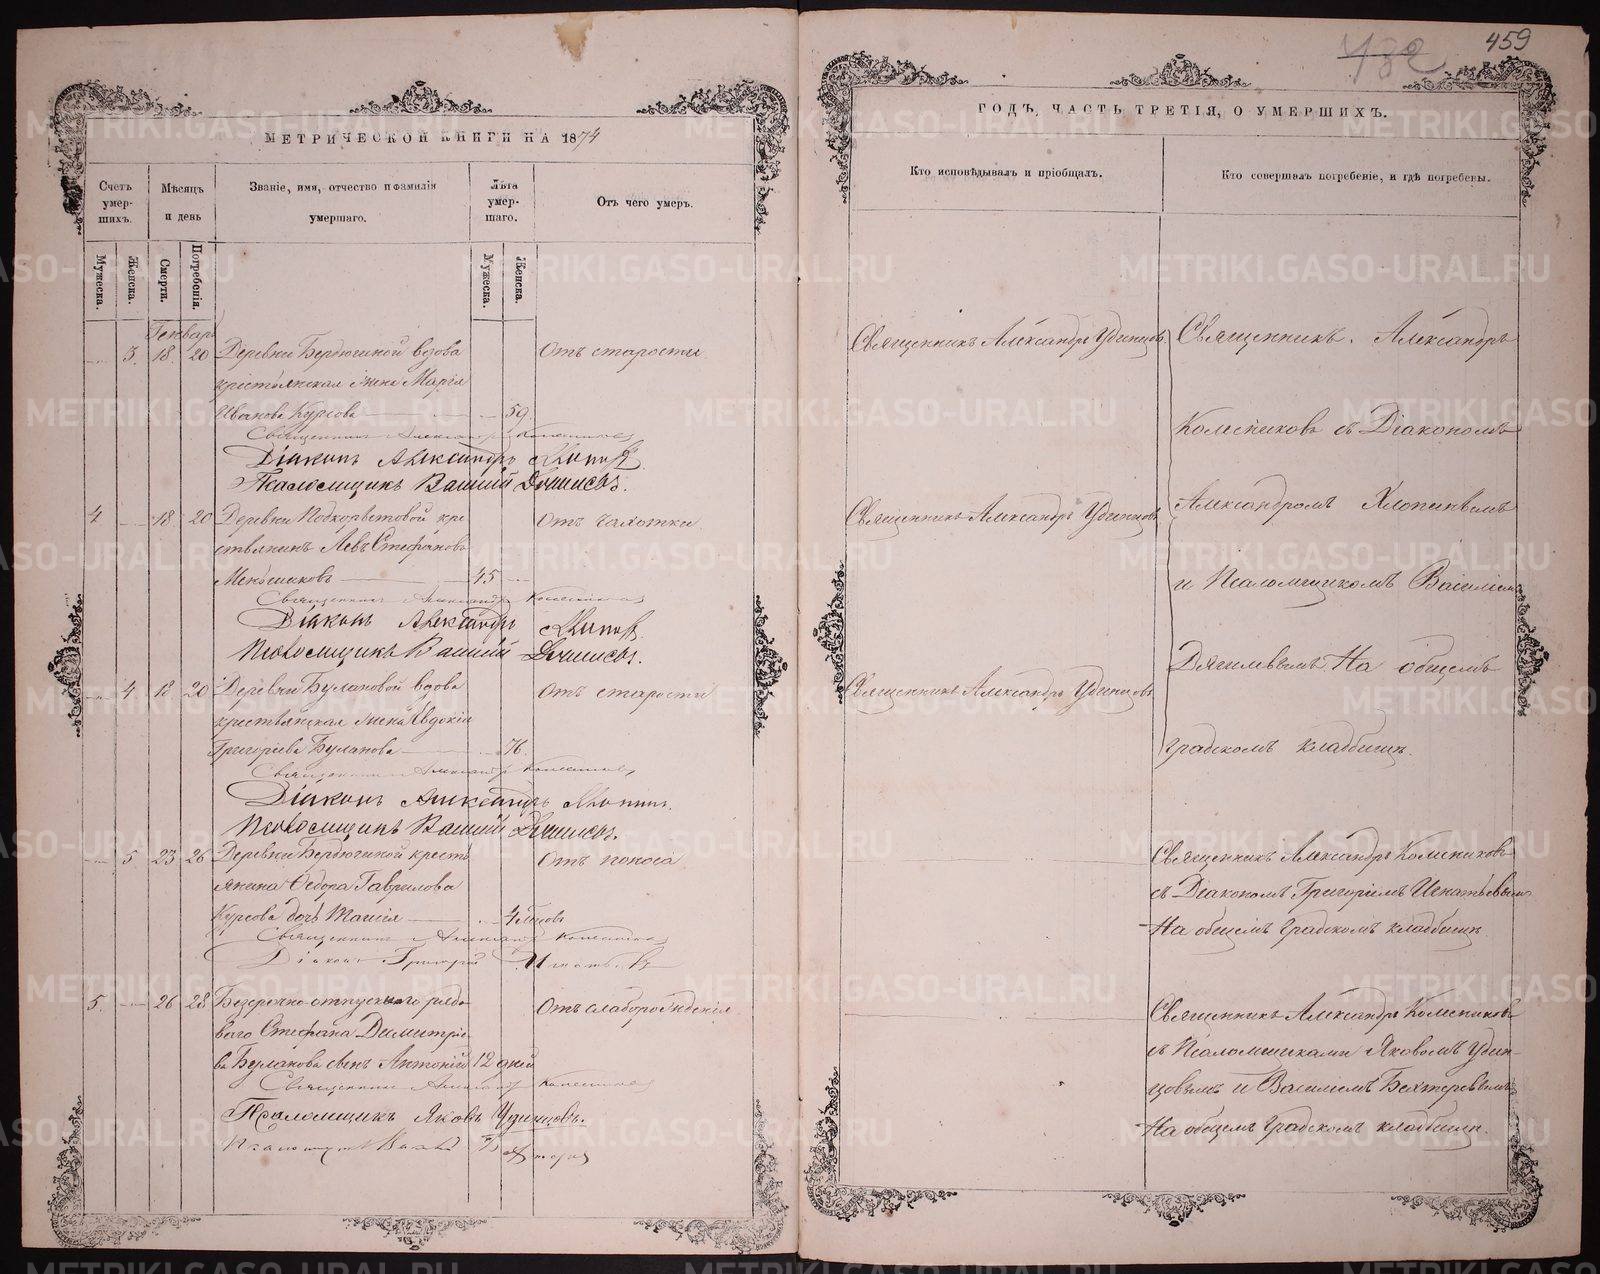 459
МЕТРИЧЕСКОЙ КНИГИ НА 1874
Счетъ умер-шихъ.
Мѣсяцъ и день
Званіе, имя, отчество и фамилія умершаго.
Лѣта умер-шаго.
Отъ чего умеръ.
Мужеска.
Женска.
Смерти.
Погребенія.
Мужеска.
Женска.
Генварь
3. 18. 20 Деревни Бердюгиной вдова Отъ старости
крестьянская жена Марія
Иванова Курсова 59.
Священникъ Александръ Колесниковъ
Діаконъ Александръ
Псаломщикъ Василій
4 18 20 Деревни Подкорытовой кре Отъ чахотки
стьянинъ Левъ Стефановъ
45
Священникъ Александръ Колесниковъ
Діаконъ Александръ
Псаломщикъ Василій
4 18 20 Деревни Булановой вдова Отъ старости
крестьянская жена Евдокія
Григорьева Буланова 76.
Священникъ Александръ Колесниковъ
Діаконъ Александръ
Псаломщикъ Василій
5 23 26 Деревни Бердюгиной кресть Отъ поноса
янина Ѳедора Гаврилова
Курсова дочь Таисія 4
Священникъ Александръ Колесниковъ
Діаконъ Григорій
5. 26 28 Безсрочно-отпускнаго рядо Отъ слаборожденія
ваго Стефана Димитріе
ва Буланова сынъ Антоній 12 дней
Священникъ Александръ Колесниковъ
Псаломщикъ Яковъ Удинцовъ.
ГОДЪ, ЧАСТЬ ТРЕТІЯ, О УМЕРШИХЪ.
Кто исповѣдывалъ и пріобщалъ.
Кто совершалъ погребеніе, и гдѣ погребены.
Священникъ Александръ Удинцовъ. Священникъ. Александръ
Колесниковъ съ Діакономъ
Священникъ Александръ Удинцовъ Александромъ Хлопинымъ
и Псаломщикомъ Василіемъ
Священникъ Александръ Удинцовъ Дягилевымъ На общемъ
градскомъ кладбищѣ.
Священникъ Александръ Колесниковъ
съ Діакономъ Григоріемъ Игнатьевымъ
На общемъ градскомъ кладбищѣ.
Священникъ Александръ Колесниковъ
съ Псаломщиками Яковомъ Удин-
цовымъ и Василіемъ Бехтеревымъ
На общемъ градскомъ кладбищѣ.
METRIKI.GASO-URAL.RU